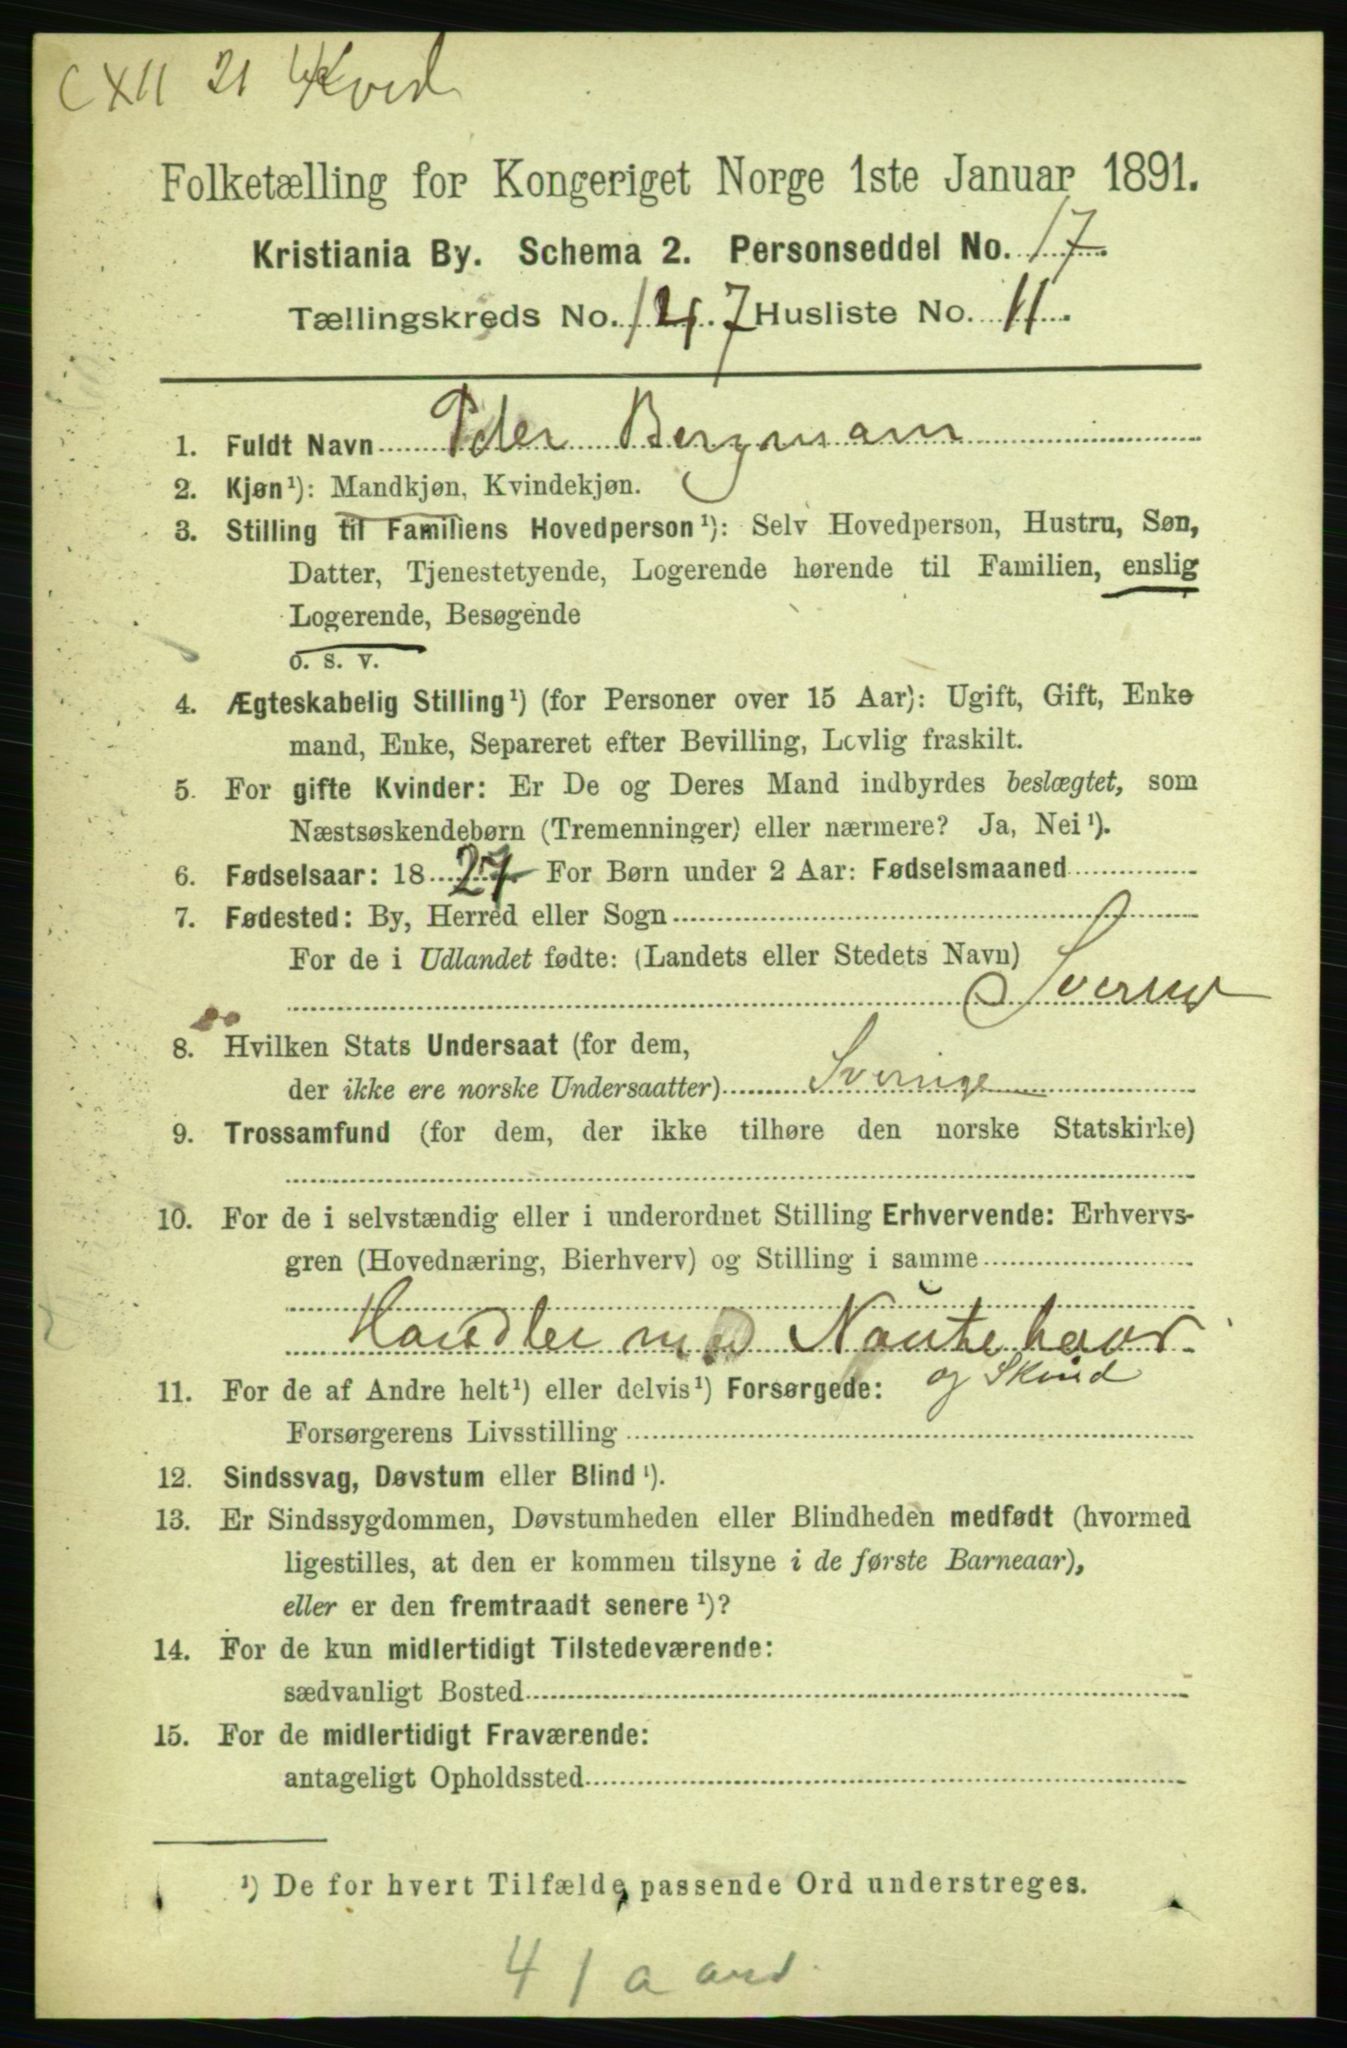 CXII 21
Folketælling for Kongeriget Norge 1ste Januar 1891.
Kristiania By. Schema 2. Personseddel No. 17
Tællingskreds No. 147 Husliste No. 11
1. Fuldt Navn Peder Bergmann
2. Kjøn¹): Mandkjøn, Kvindekjøn.
3. Stilling til Familiens Hovedperson¹): Selv Hovedperson, Hustru, Søn,
Datter, Tjenestetyende, Logerende hørende til Familien, enslig
Logerende, Besøgende
o. s. v.
4. Ægteskabelig Stilling¹) (for Personer over 15 Aar): Ugift, Gift, Enke
mand, Enke, Separeret efter Bevilling, Lovlig fraskilt.
5. For gifte Kvinder: Er De og Deres Mand indbyrdes beslægtet, som
Næstsøskendebørn (Tremenninger) eller nærmere? Ja, Nei¹).
6. Fødselsaar: 1827 For Børn under 2 Aar: Fødselsmaaned
7. Fødested: By, Herred eller Sogn
For de i Udlandet fødte: (Landets eller Stedets Navn)
8. Hvilken Stats Undersaat (for dem,
der ikke ere norske Undersaatter) Sverige
9. Trossamfund (for dem, der ikke tilhøre den norske Statskirke)
10. For de i selvstændig eller i underordnet Stilling Erhvervende: Erhvervs-
gren (Hovednæring, Bierhverv) og Stilling i samme
Handler med Nautehaar
og Skind
11. For de af Andre helt¹) eller delvis¹) Forsørgede:
Forsørgerens Livsstilling
12. Sindssvag, Døvstum eller Blind¹).
13. Er Sindssygdommen, Døvstumheden eller Blindheden medfødt (hvormed
ligestilles, at den er kommen tilsyne i de første Barneaar),
eller er den fremtraadt senere¹)?
14. For de kun midlertidigt Tilstedeværende:
sædvanligt Bosted
15. For de midlertidigt Fraværende:
antageligt Opholdssted
¹) De for hvert Tilfælde passende Ord understreges.
41 a